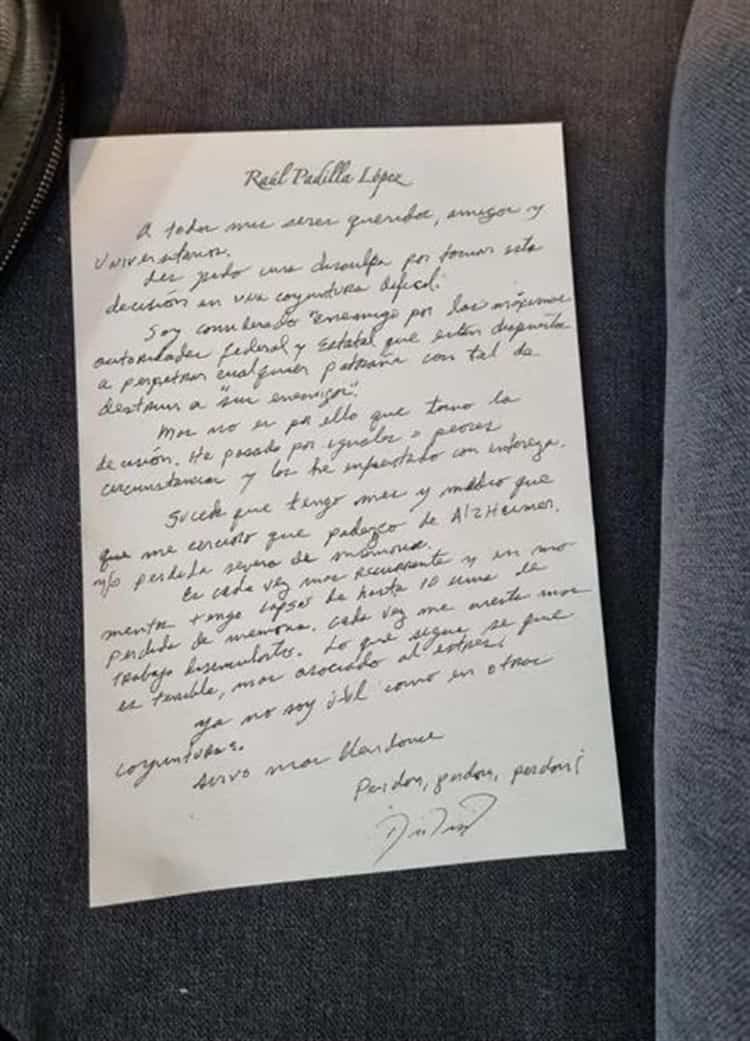 Raúl Padilla López
A todos mis seres queridos, amigos y
Universitarios.
Les pido una disculpa por tomar esta
decisión en una coyuntura difícil.
Soy considerado "enemigo por las máximas
autoridades federal y Estatal que están dispuestas
a perpetrar cualquier patraña con tal de
destruir a "sus enemigos".
Mas no es por ello que tomo la
decisión. He pasado por iguales o peores
circunstancias y las he enfrentado con entereza.
Sucede que tengo mes y medio que
que me cercioro que padezco de AlzHeimer.
y/o perdida severa de memoria.
Es cada vez mas recurrente y en mo
mentos tengo lapsos de hasta 10 mins de
perdida de memoria. Cada vez me cuesta mas
trabajo
Lo que sigue se que
es terrible, mas asociado al estres.
ya no soy útil como en otras
coyunturas.
Sirvo mas
Perdon, perdon, perdon!